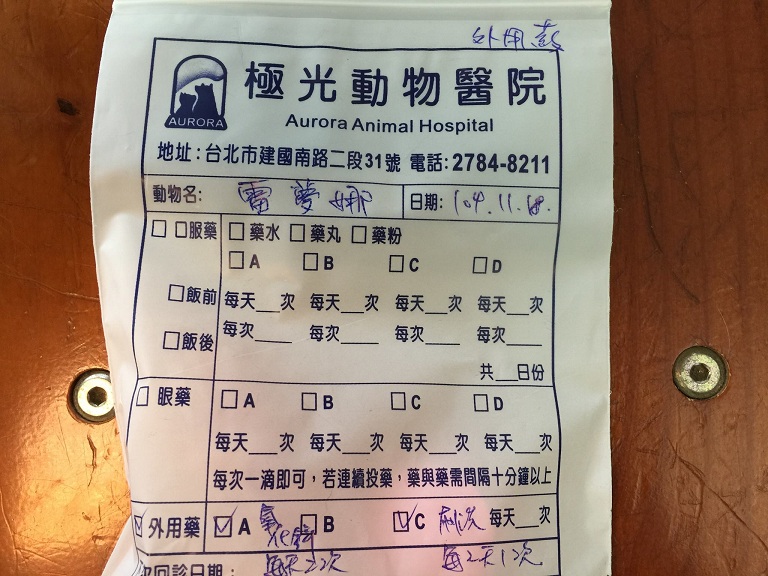 外用藥
極光動物醫院
AURORA
Aurora Animal Hospital
地址:台北市建國南路二段31號 電話:2784-8211
動物名: 雷夢娜 日期: 104.11.18.
□ 口服藥 □ 藥水 □ 藥丸 □ 藥粉
□ A □ B □ C □ D
□ 飯前 每天__次 每天__次 每天__次 每天__次
□ 飯後 每次____ 每次____ 每次____ 每次____
共__日份
□ 眼藥 □ A □ B □ C □ D
每天__次 每天__次 每天__次 每天__次
每次一滴即可,若連續投藥,藥與藥需間隔十分鐘以上
☑ 外用藥 ☑ A □ B ☑ C 每天__次
次回診日期: 每天2次 每2天1次